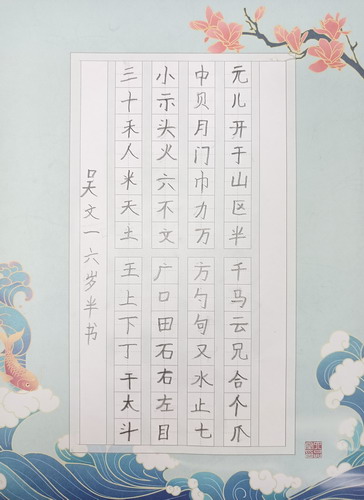 元儿开于山区半千马云兄合个爪
中贝月门巾力万方勺句又水止七
小示头火六不文广口田石右左目
三十禾人米天土王上下丁干太斗
吴文一六岁半书